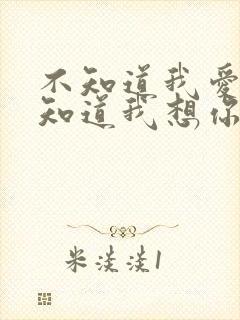 不知道我爱
知道我想你
米淡淡1